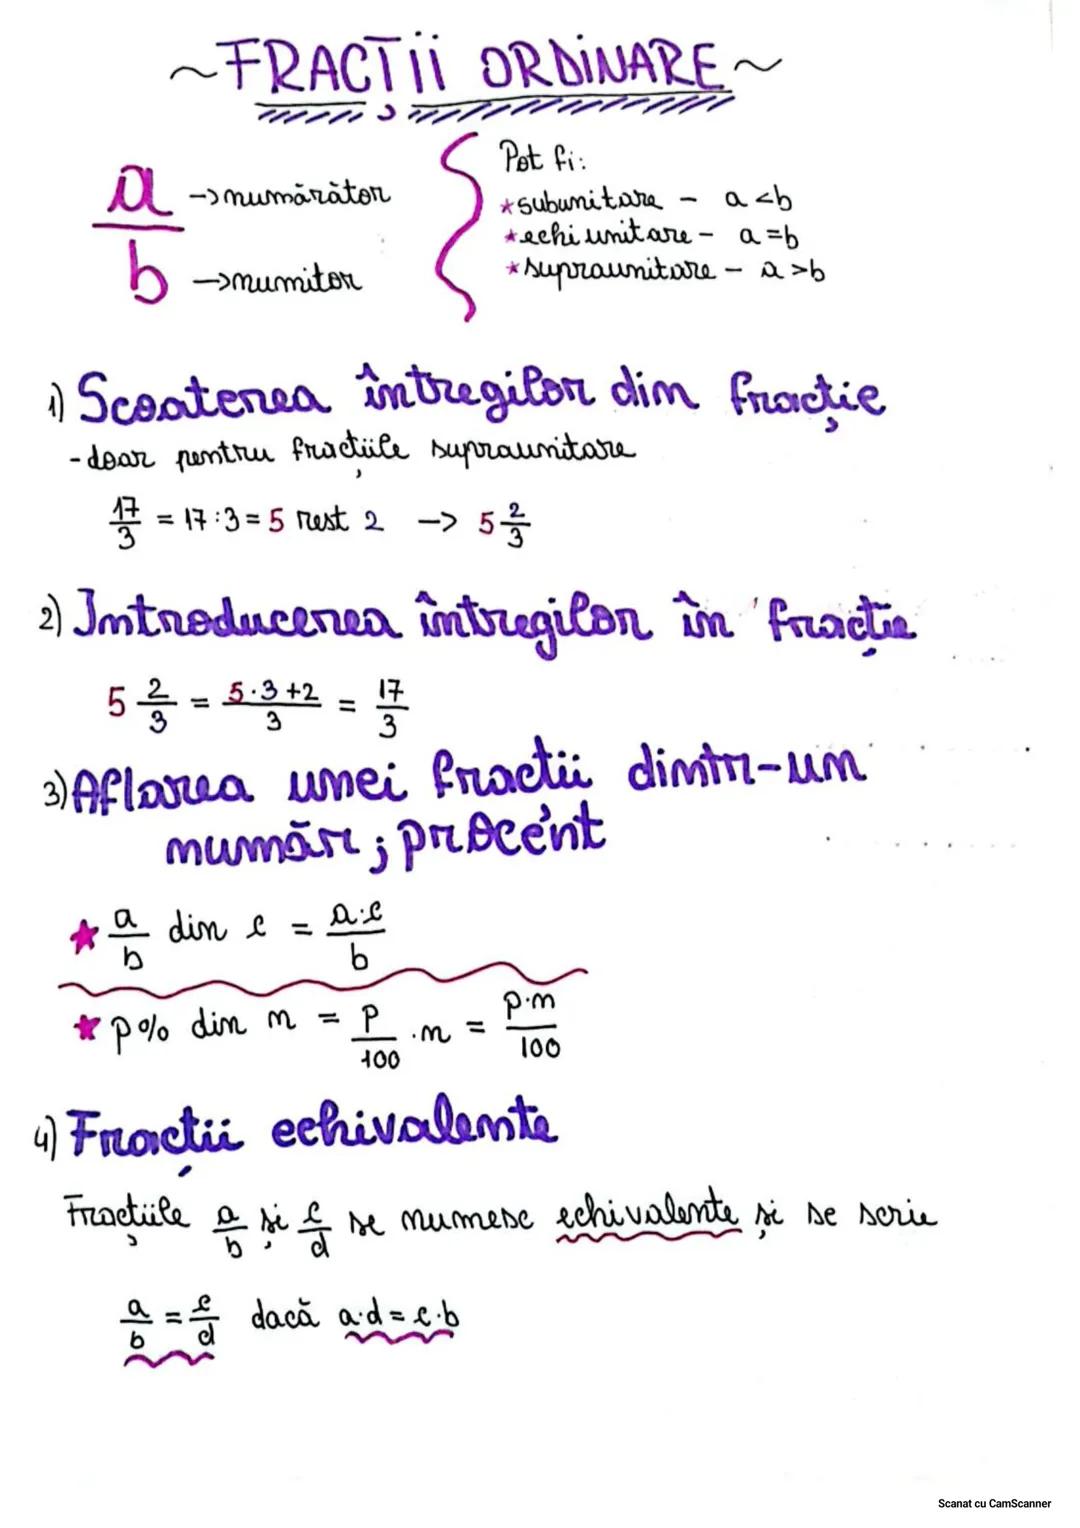 ~FRACȚII ORDINARE~
a/b
a → numărător
b → numitor
Pot fi:
*subunitare - a<b
*echiunitare - a=b
*supraunitare - a>b
1) Scoaterea întregilor din fracție
- doar pentru fracțiile supraunitare
17/3 = 17:3 = 5 rest 2 -> 5 2/3
2) Introducerea întregilor în fracție
5 2/3 = 5·3+2/3 = 17/3
3) Aflarea unei fractii dintr-un
număr; procent
★ a/b din c = a·c/b
★ p% din n = p/100 ·n = p·n/100
4) Fracții echivalente
Fracțiile a/b și c/d se numesc echivalente și se scrie
a/b = c/d dacă a·d = c·b
Scanat cu CamScanner